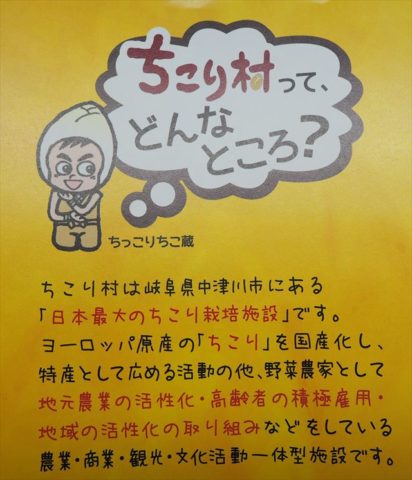 ちこり村って、
どんな
ところ?
ちっこりちこ蔵
ちこり村は岐阜県中津川市にある
「日本最大のちこり栽培施設」です。
ヨーロッパ原産の「ちこり」を国産化し、
特産として広める活動の他、野菜農家として
地元農業の活性化・高齢者の積極雇用・
地域の活性化の取り組みなどをしている
農業・商業・観光・文化活動一体型施設です。